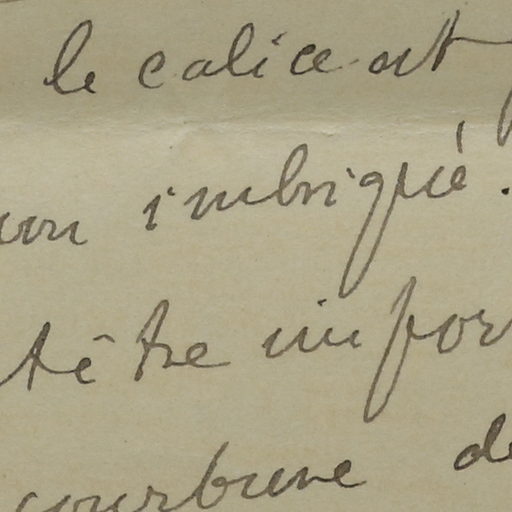 le calice est
non imbriqué.
t être impor
courbure de